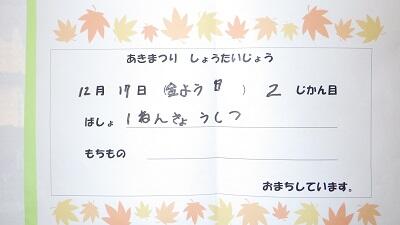 あきまつり しょうたいじょう
12月 17日 (金よう日) 2 じかん目
ばしょ 1ねんきょうしつ
もちもの
おまちしています。